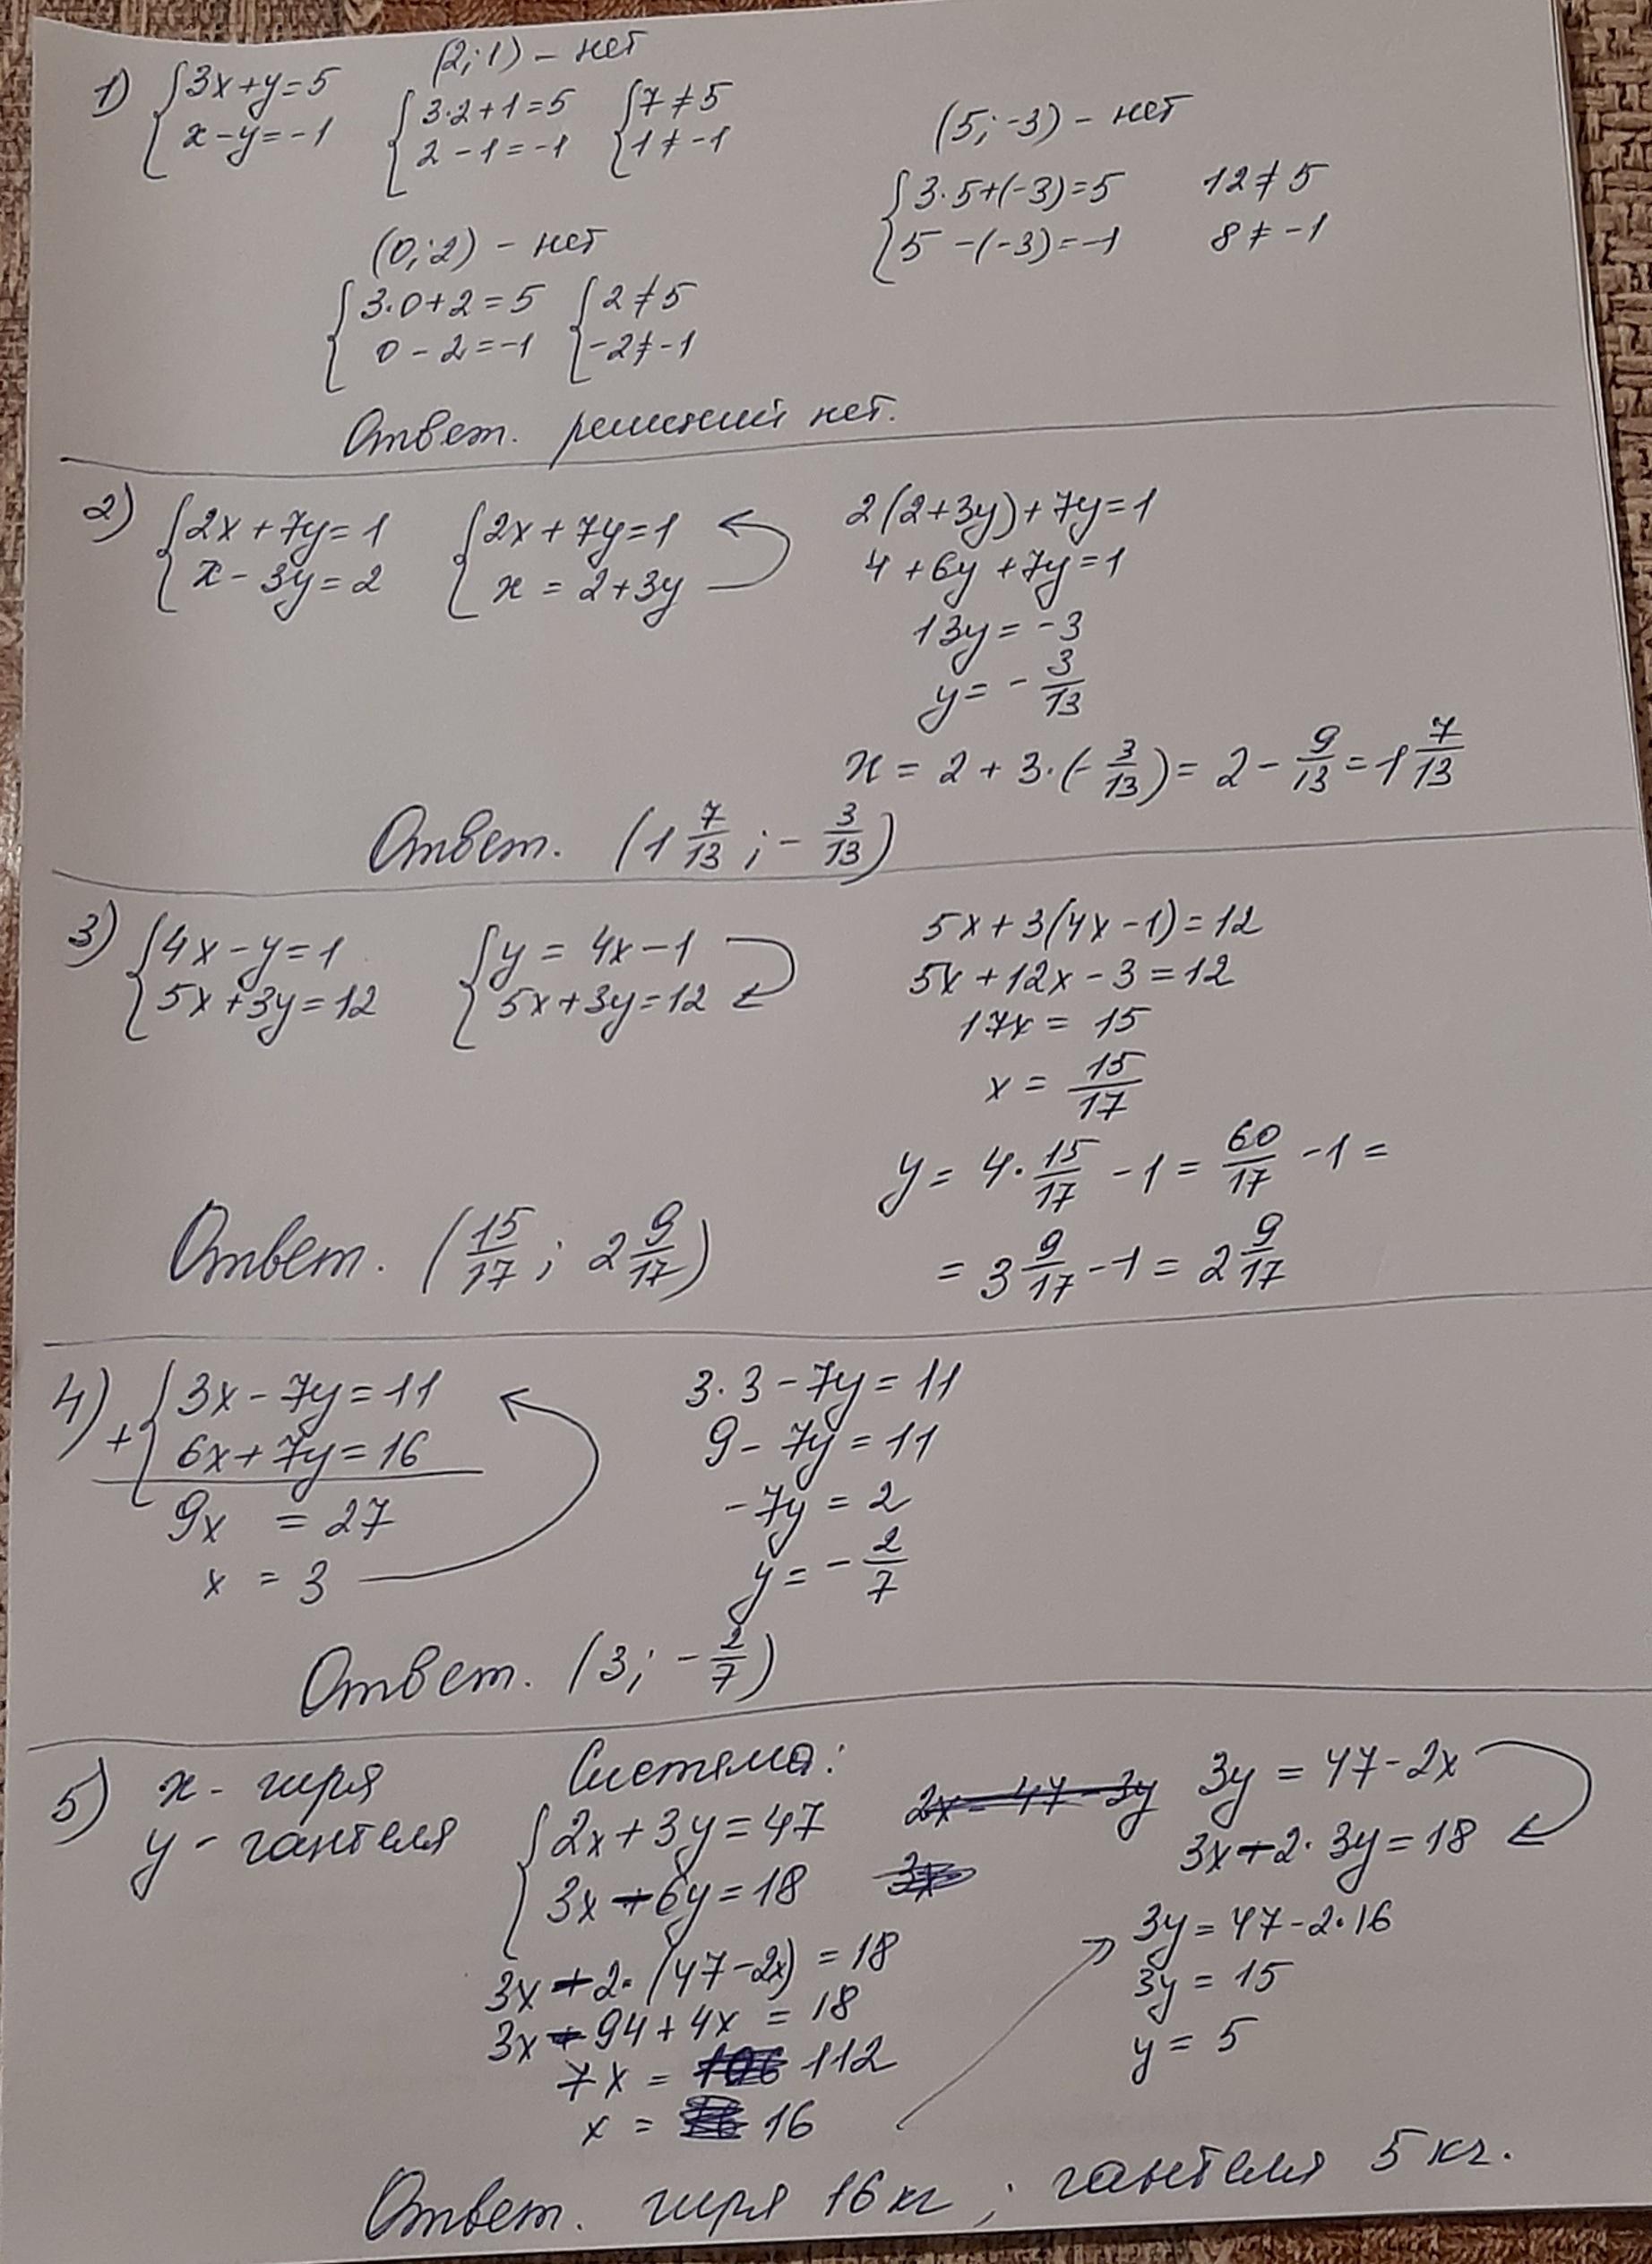 1) {3x+y=5
x-y=-1
(2;1) - нет
{3·2+1=5 {7≠5
2-1=-1 1≠-1
(5;-3) - нет
{3·5+(-3)=5 12≠5
5-(-3)=-1 8≠-1
(0;2) - нет
{3·0+2=5 {2≠5
0-2=-1 -2≠-1
Ответ. решений нет.
2) {2x+7y=1 {2x+7y=1
x-3y=2 x=2+3y
2(2+3y)+7y=1
4+6y+7y=1
13y=-3
y=-3/13
x=2+3·(-3/13)=2-9/13=1 7/13
Ответ. (1 7/13; -3/13)
3) {4x-y=1 {y=4x-1
5x+3y=12 5x+3y=12
5x+3(4x-1)=12
5x+12x-3=12
17x=15
x=15/17
y=4·15/17-1=60/17-1=
=3 9/17-1=2 9/17
Ответ. (15/17; 2 9/17)
4) + {3x-7y=11
6x+7y=16
9x=27
x=3
3·3-7y=11
9-7y=11
-7y=2
y=-2/7
Ответ. (3; -2/7)
5) x - гиря
y - гантеля
Система:
{2x+3y=47
3x-6y=18
3y=47-2x
3x-2·3y=18
3x-2·(47-2x)=18
3x-94+4x=18
7x=112
x=16
3y=47-2·16
3y=15
y=5
Ответ. гиря 16 кг; гантеля 5 кг.